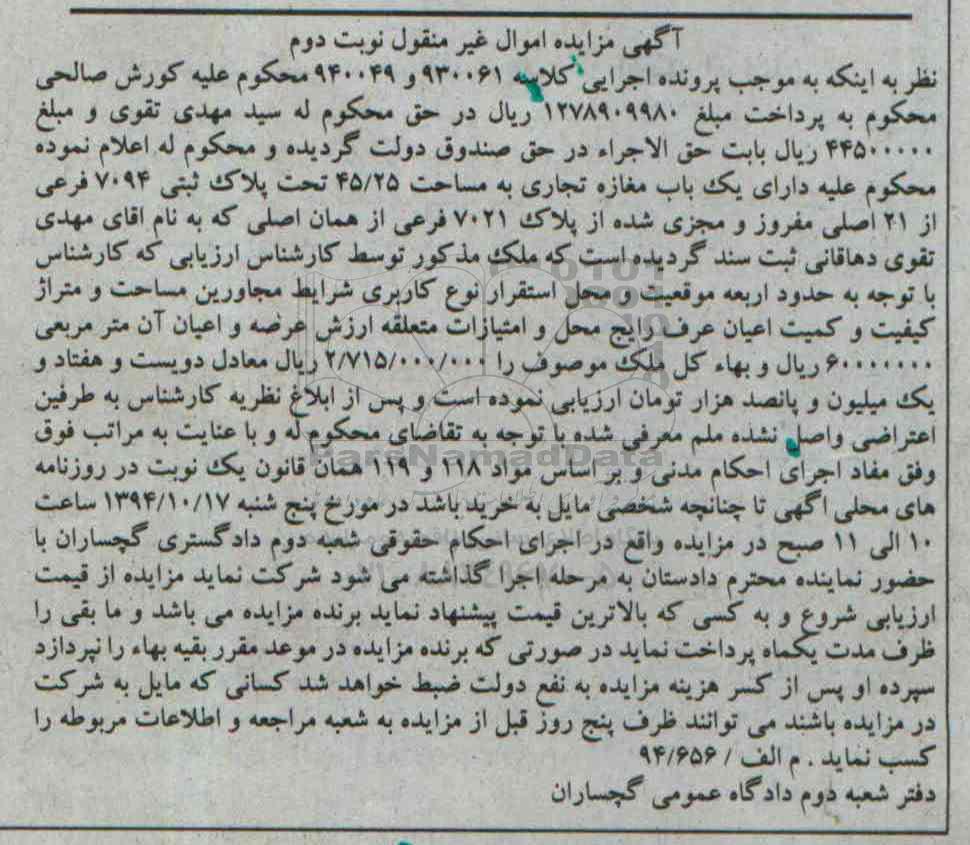 آگهی مزایده اموال غیر منقول نوبت دوم
نظر به اینکه به موجب پرونده اجرایی کلاسه ۹۳۰۰۶۱ و ۹۴۰۰۴۹ محکوم علیه کورش صالحی
محکوم به پرداخت مبلغ ۱۲۷۸۹۰۹۹۸۰ ریال در حق محکوم له سید مهدی تقوی و مبلغ
۴۴۵۰۰۰۰۰ ریال بابت حق الاجراء در حق صندوق دولت گردیده و محکوم له اعلام نموده
محکوم علیه دارای یک باب مغازه تجاری به مساحت ۴۵/۲۵ تحت پلاک ثبتی ۷۰۹۴ فرعی
از ۲۱ اصلی مفروز و مجزی شده از پلاک ۷۰۲۱ فرعی از همان اصلی که به نام اقای مهدی
تقوی دهاقانی ثبت سند گردیده است که ملک مذکور توسط کارشناس ارزیابی که کارشناس
با توجه به حدود اربعه موقعیت و محل استقرار نوع کاربری شرایط مجاورین مساحت و متراژ
کیفیت و کمیت اعیان عرف رایج محل و امتیازات متعلقه ارزش عرضه و اعیان آن متر مربعی
۶۰۰۰۰۰۰۰ ریال و بهاء کل ملک موصوف را ۲/۷۱۵/۰۰۰/۰۰۰ ریال معادل دویست و هفتاد و
یک میلیون و پانصد هزار تومان ارزیابی نموده است و پس از ابلاغ نظریه کارشناس به طرفین
اعتراضی واصل نشده ملم معرفی شده با توجه به تقاضای محکوم له و با عنایت به مراتب فوق
وفق مفاد اجرای احکام مدنی و بر اساس مواد ۱۱۸ و ۱۱۹ همان قانون یک نوبت در روزنامه
های محلی اگهی تا چنانچه شخصی مایل به خرید باشد در مورخ پنج شنبه ۱۳۹۴/۱۰/۱۷ ساعت
۱۰ الی ۱۱ صبح در مزایده واقع در اجرای احکام حقوقی شعبه دوم دادگستری گچساران با
حضور نماینده محترم دادستان به مرحله اجرا گذاشته می شود شرکت نماید مزایده از قیمت
ارزیابی شروع و به کسی که بالاترین قیمت پیشنهاد نماید برنده مزایده می باشد و ما بقی را
ظرف مدت یکماه پرداخت نماید در صورتی که برنده مزایده در موعد مقرر بقیه بهاء را نپردازد
سپرده او پس از کسر هزینه مزایده به نفع دولت ضبط خواهد شد کسانی که مایل به شرکت
در مزایده باشند می توانند ظرف پنج روز قبل از مزایده به شعبه مراجعه و اطلاعات مربوطه را
کسب نماید . م الف / ۹۴/۶۵۶
دفتر شعبه دوم دادگاه عمومی گچساران
ParsNamadData